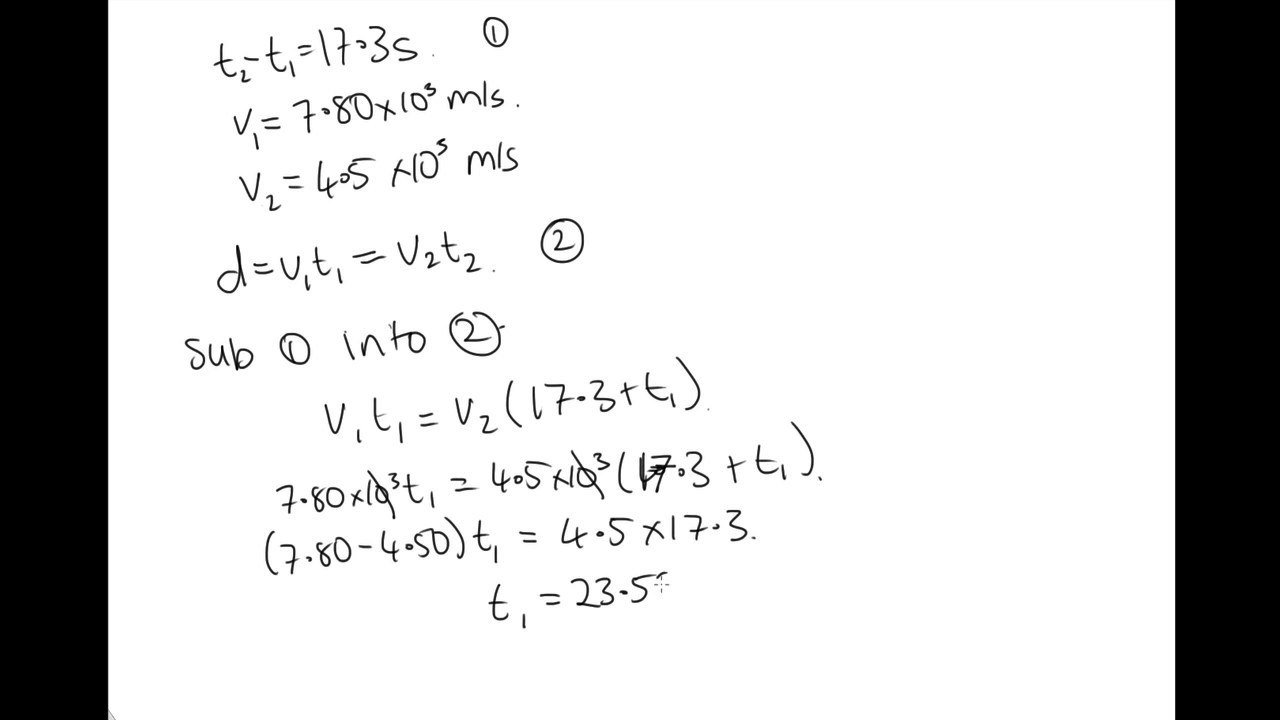 t₂-t₁=17.3s. ①
v₁=7.80×10³ m/s.
v₂=4.5 ×10³ m/s
d=v₁t₁=v₂t₂. ②
Sub ① into ②
v₁t₁=v₂(17.3+t₁).
7.80×10³t₁ = 4.5×10³(17.3+t₁).
(7.80-4.50)t₁ = 4.5×17.3.
t₁=23.5